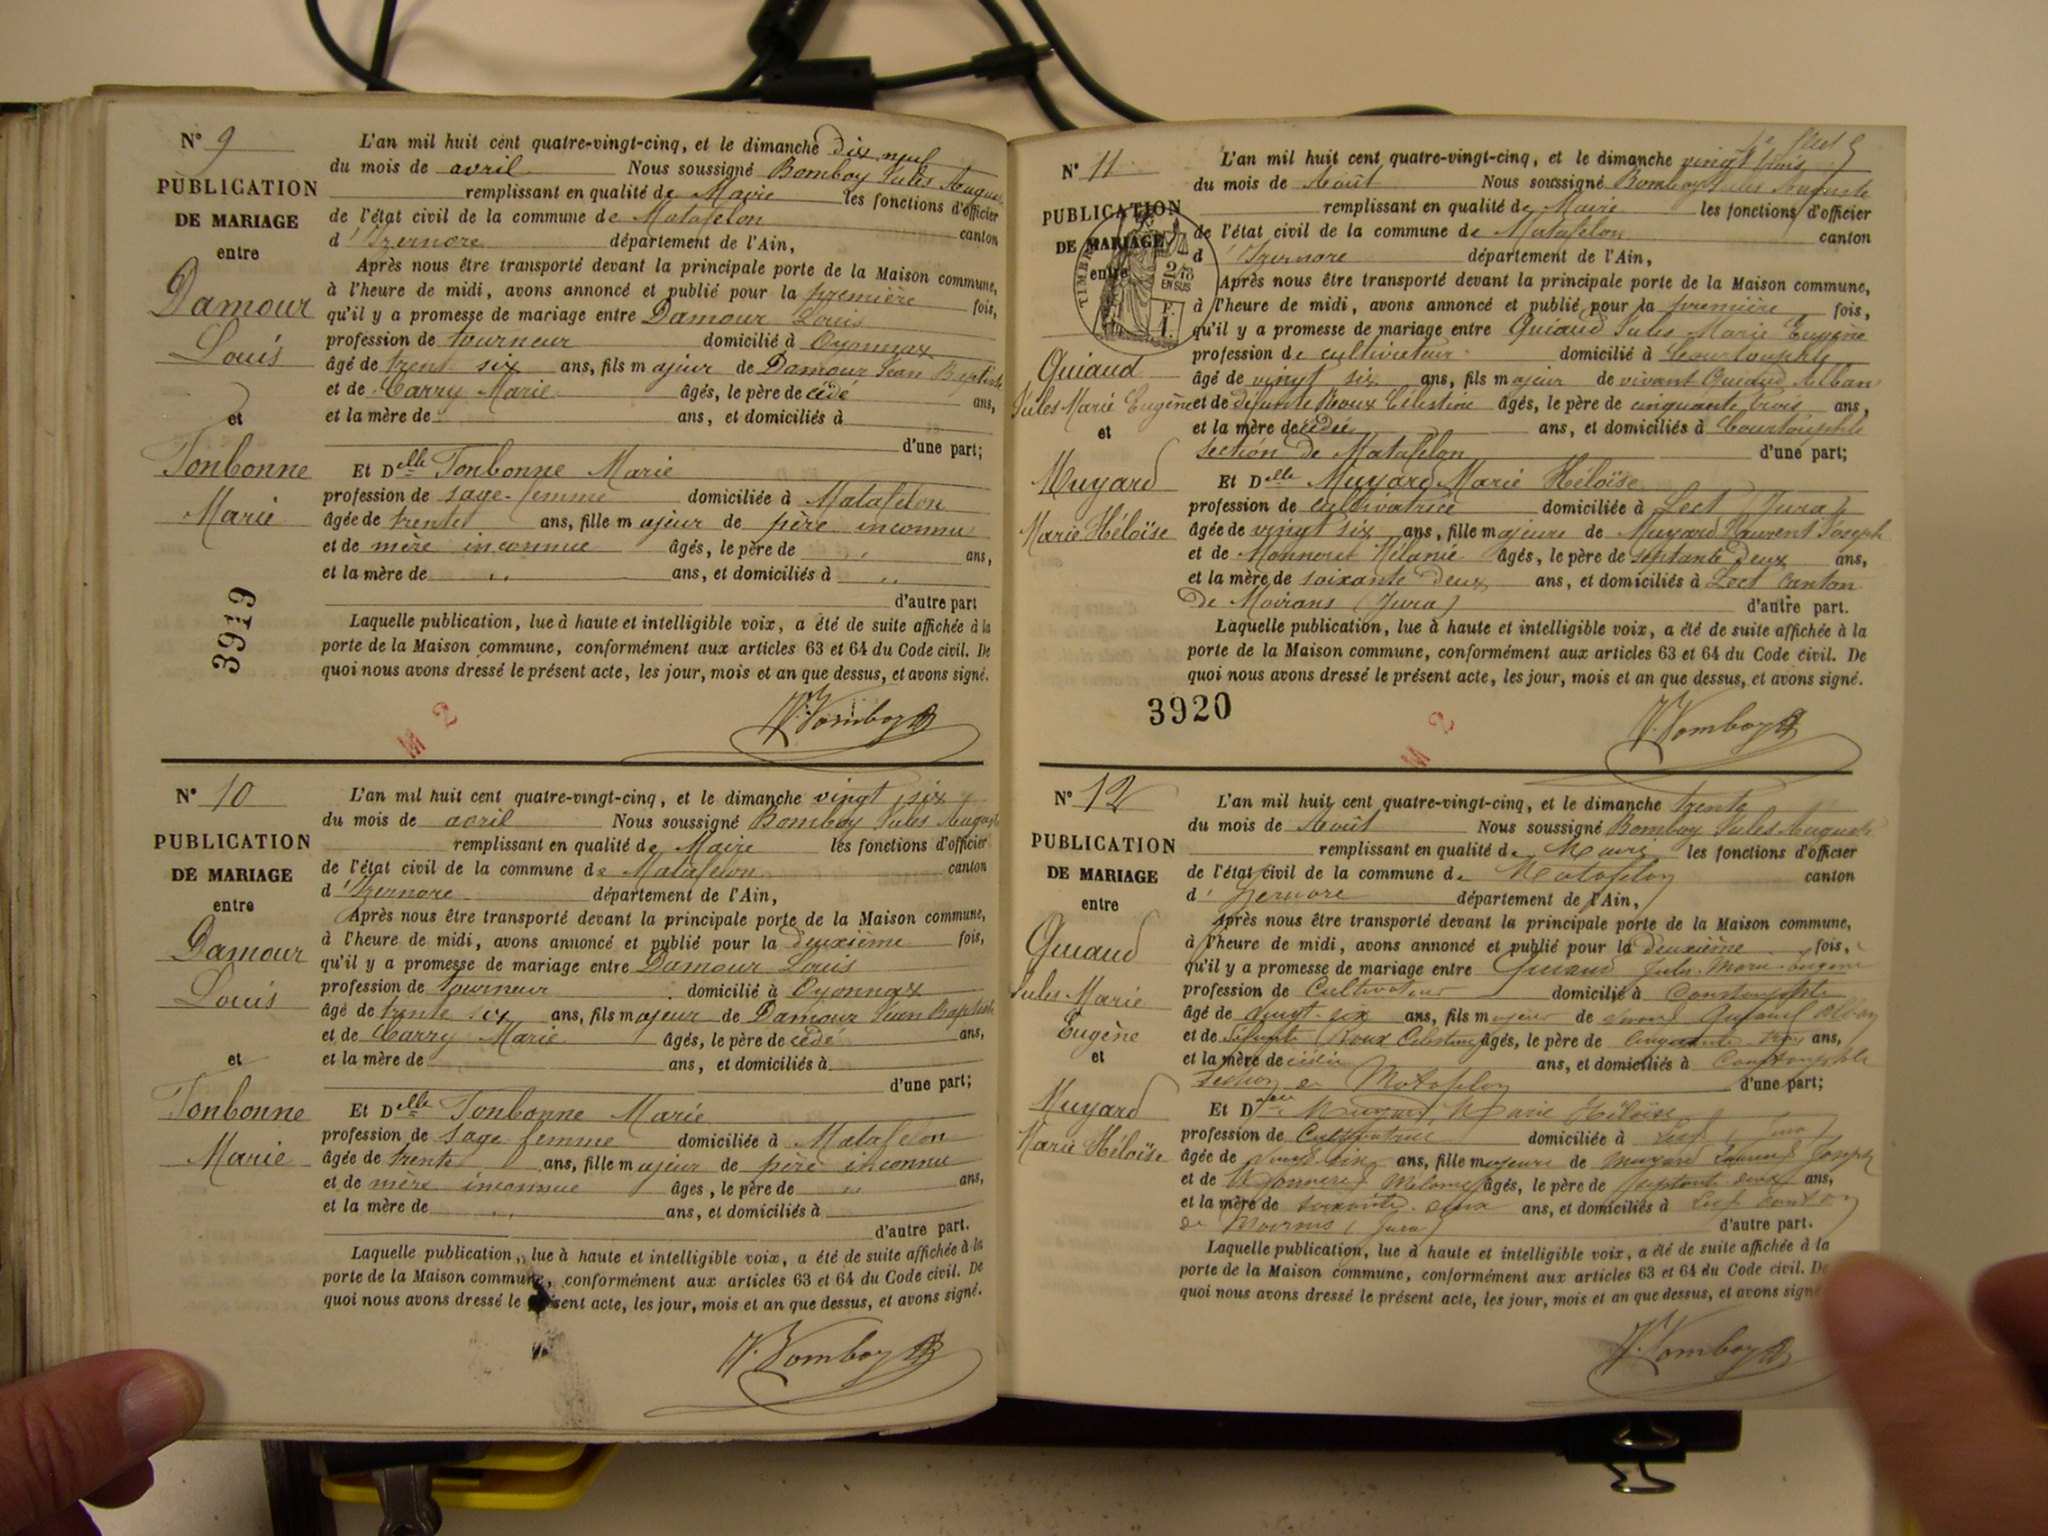 N° 9
PUBLICATION
DE MARIAGE
entre
Damour
Louis
et
Tonbonne
Marie
3919
L'an mil huit cent quatre-vingt-cinq, et le dimanche dix neuf
du mois de avril Nous soussigné Bomboy Jules Auguste
remplissant en qualité de Maire les fonctions d'officier
de l'état civil de la commune de Matafelon canton
d'Izernore département de l'Ain,
Après nous être transporté devant la principale porte de la Maison commune,
à l'heure de midi, avons annoncé et publié pour la première fois,
qu'il y a promesse de mariage entre Damour Louis
profession de tourneur domicilié à Oyonnax
âgé de trent six ans, fils majeur de Damour Jean Baptiste
et de Carry Marie âgés, le père de cédé ans,
et la mère de ans, et domiciliés à
d'une part;
Et Delle Tonbonne Marie
profession de sage-femme domiciliée à Matafelon
âgée de trente ans, fille majeur de père inconnu
et de mère inconnue âgés, le père de " ans,
et la mère de " ans, et domiciliés à "
d'autre part
Laquelle publication, lue à haute et intelligible voix, a été de suite affichée à la
porte de la Maison commune, conformément aux articles 63 et 64 du Code civil. De
quoi nous avons dressé le présent acte, les jour, mois et an que dessus, et avons signé.
M 2
N° 10
PUBLICATION
DE MARIAGE
entre
Damour
Louis
et
Tonbonne
Marie
L'an mil huit cent quatre-vingt-cinq, et le dimanche vingt six
du mois de avril Nous soussigné Bomboy Jules Auguste
remplissant en qualité de Maire les fonctions d'officier
de l'état civil de la commune de Matafelon canton
d'Izernore département de l'Ain,
Après nous être transporté devant la principale porte de la Maison commune,
à l'heure de midi, avons annoncé et publié pour la deuxième fois,
qu'il y a promesse de mariage entre Damour Louis
profession de tourneur domicilié à Oyonnax
âgé de trente six ans, fils majeur de Damour Jean Baptiste
et de Carry Marie âgés, le père de cédé ans,
et la mère de ans, et domiciliés à
d'une part;
Et Delle Tonbonne Marie
profession de sage femme domiciliée à Matafelon
âgée de trente ans, fille majeur de père inconnu
et de mère inconnue âges, le père de " ans,
et la mère de " ans, et domiciliés à
d'autre part.
Laquelle publication, lue à haute et intelligible voix, a été de suite affichée à la
porte de la Maison commune, conformément aux articles 63 et 64 du Code civil. De
quoi nous avons dressé le présent acte, les jour, mois et an que dessus, et avons signé.
N° 11
PUBLICATION
DE MARIAGE
entre
TIMBRE
2/10
EN SUS
Quiaud
Jules Marie Eugène
et
Muyard
Marie Héloïse
L'an mil huit cent quatre-vingt-cinq, et le dimanche vingt trois
du mois de Août Nous soussigné Bomboy Jules Auguste
remplissant en qualité de Maire les fonctions d'officier
de l'état civil de la commune de Matafelon canton
d'Izernore département de l'Ain,
Après nous être transporté devant la principale porte de la Maison commune,
à l'heure de midi, avons annoncé et publié pour la première fois,
qu'il y a promesse de mariage entre Quiaud Jules Marie Eugène
profession de cultivateur domicilié à Courtouphle
âgé de vingt six ans, fils majeur de vivant Quiaud Alban
et de défunte Roux Célestine âgés, le père de cinquante trois ans,
et la mère de cédée ans, et domiciliés à Courtouphle
section de Matafelon d'une part;
Et Delle Muyard Marie Héloïse
profession de cultivatrice domiciliée à Lect (Jura)
âgée de vingt six ans, fille majeure de Muyard Laurent Joseph
et de Monneret Mélanie âgés, le père de septante deux ans,
et la mère de soixante deux ans, et domiciliés à Lect canton
de Moirans (Jura) d'autre part.
Laquelle publication, lue à haute et intelligible voix, a été de suite affichée à la
porte de la Maison commune, conformément aux articles 63 et 64 du Code civil. De
quoi nous avons dressé le présent acte, les jour, mois et an que dessus, et avons signé.
3920
M 2
N° 12
PUBLICATION
DE MARIAGE
entre
Quiaud
Jules Marie
Eugène
et
Muyard
Marie Héloïse
L'an mil huit cent quatre-vingt-cinq, et le dimanche trente
du mois de Août Nous soussigné Bomboy Jules Auguste
remplissant en qualité de Maire les fonctions d'officier
de l'état civil de la commune de Matafelon canton
d'Izernore département de l'Ain,
Après nous être transporté devant la principale porte de la Maison commune,
à l'heure de midi, avons annoncé et publié pour la deuxième fois,
qu'il y a promesse de mariage entre Quiaud Jules Marie Eugène
profession de Cultivateur domicilié à Courtouphle
âgé de vingt-six ans, fils majeur de vivant Quiaud Alban
et de défunte Roux Célestine âgés, le père de Cinquante trois ans,
et la mère de cédée ans, et domiciliés à Courtouphle
section de Matafelon d'une part;
Et Delle Muyard Marie Héloïse
profession de Cultivatrice domiciliée à Lect (Jura)
âgée de vingt six ans, fille majeure de Muyard Laurent Joseph
et de Monneret Mélanie âgés, le père de septante deux ans,
et la mère de soixante-deux ans, et domiciliés à Lect canton
de Moirans (Jura) d'autre part.
Laquelle publication, lue à haute et intelligible voix, a été de suite affichée à la
porte de la Maison commune, conformément aux articles 63 et 64 du Code civil. De
quoi nous avons dressé le présent acte, les jour, mois et an que dessus, et avons signé